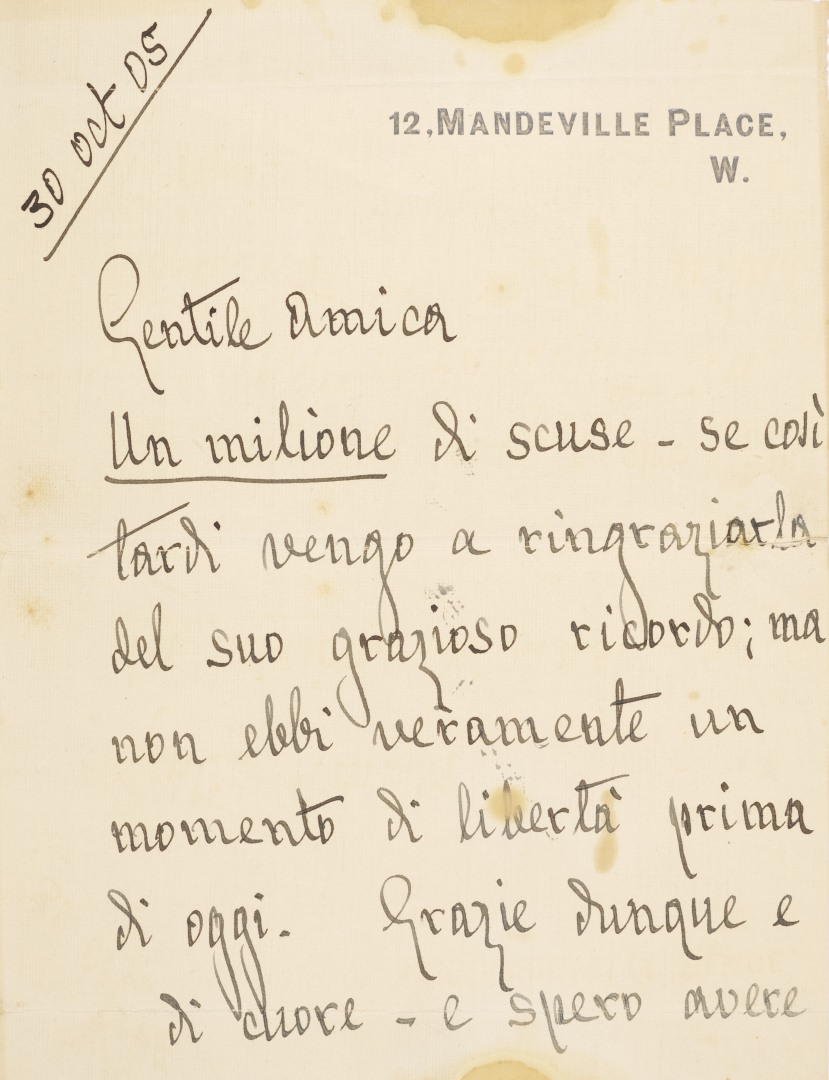 30 oct 05
12, MANDEVILLE PLACE,
W.
Gentile Amica
Un milione di scuse - se così
tardi vengo a ringraziarla
del suo grazioso ricordo; ma
non ebbi veramente un
momento di libertà prima
di oggi. Grazie dunque e
di cuore - e spero avere